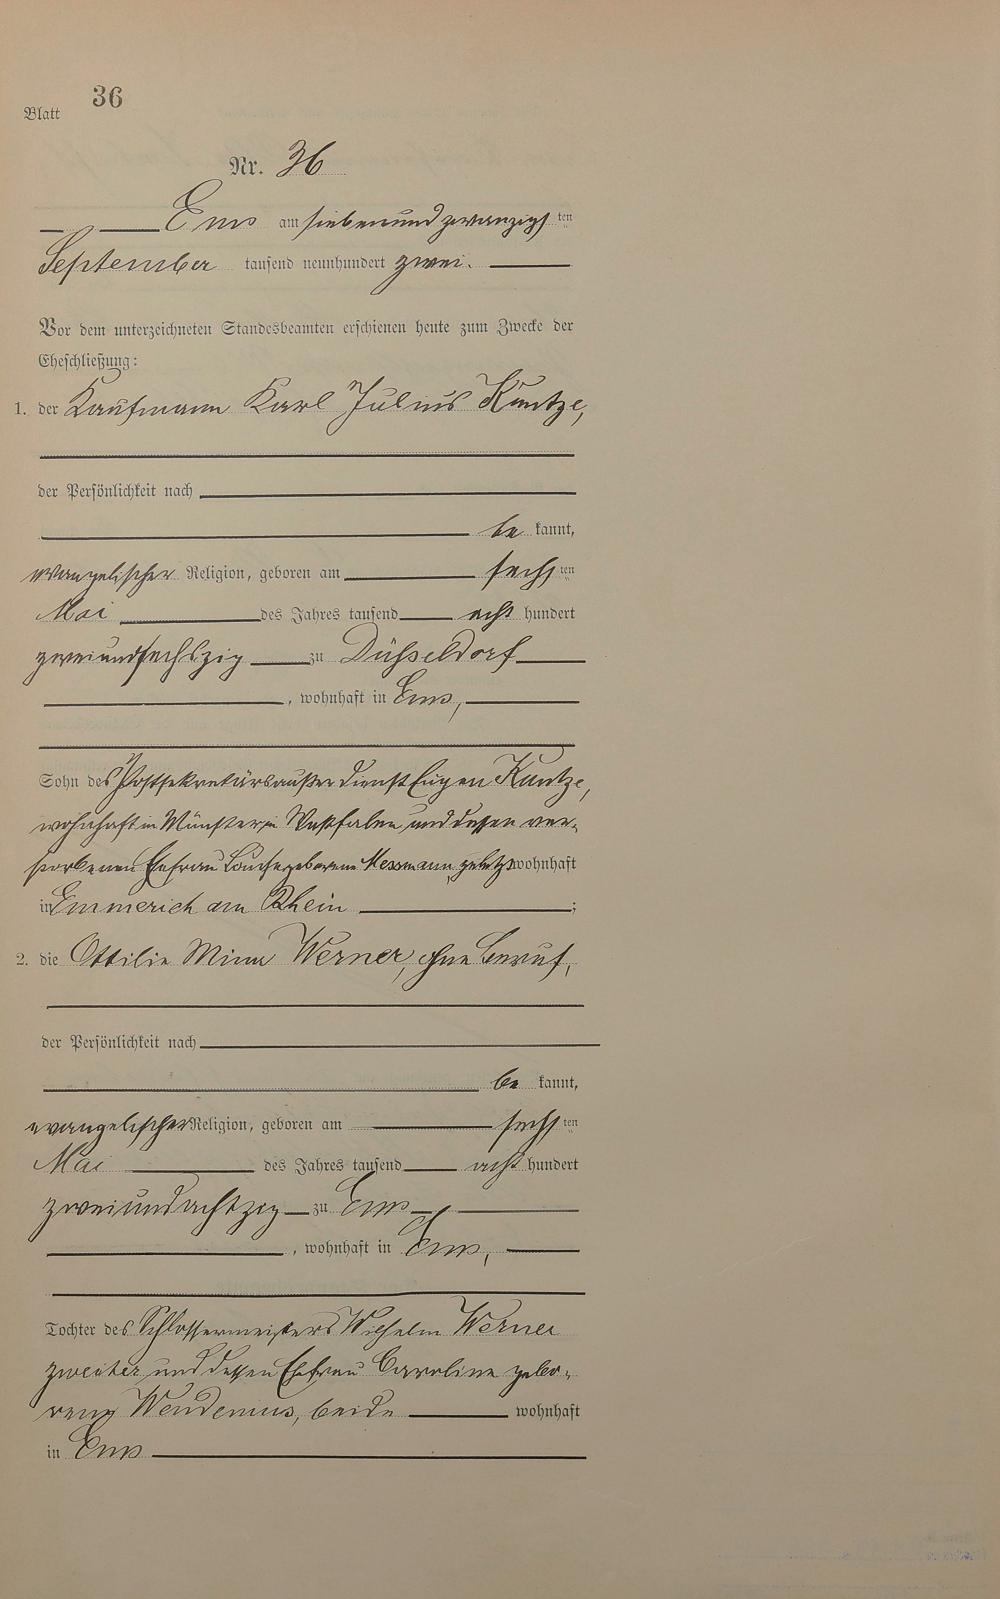 Blatt 36
Nr. 36
Ems am siebenundzwanzigsten
September tausend neunhundert zwei.
Vor dem unterzeichneten Standesbeamten erschienen heute zum Zwecke der
Eheschließung:
1. der Kaufmann Karl Julius Kuntze,
der Persönlichkeit nach
be kannt,
evangelischer Religion, geboren am sechsten
Mai des Jahres tausend acht hundert
zweiundsechszig zu Düsseldorf
, wohnhaft in Ems,
Sohn des Postsekretärs außer Dienst Eugen Kuntze,
wohnhaft in Münster in Westfalen und dessen ver-
storbenen Ehefrau Louise geborene Messmann, zuletzt wohnhaft
in Emmerich am Rhein ;
2. die Ottilie Minna Werner, ohne Beruf,
der Persönlichkeit nach
be kannt,
evangelischer Religion, geboren am sechsten
Mai des Jahres tausend acht hundert
zweiundachtzig zu Ems
, wohnhaft in Ems,
Tochter des Schlossermeisters Wilhelm Werner
zweiter und dessen Ehefrau Caroline gebo-
rene Wendenius, beide wohnhaft
in Ems